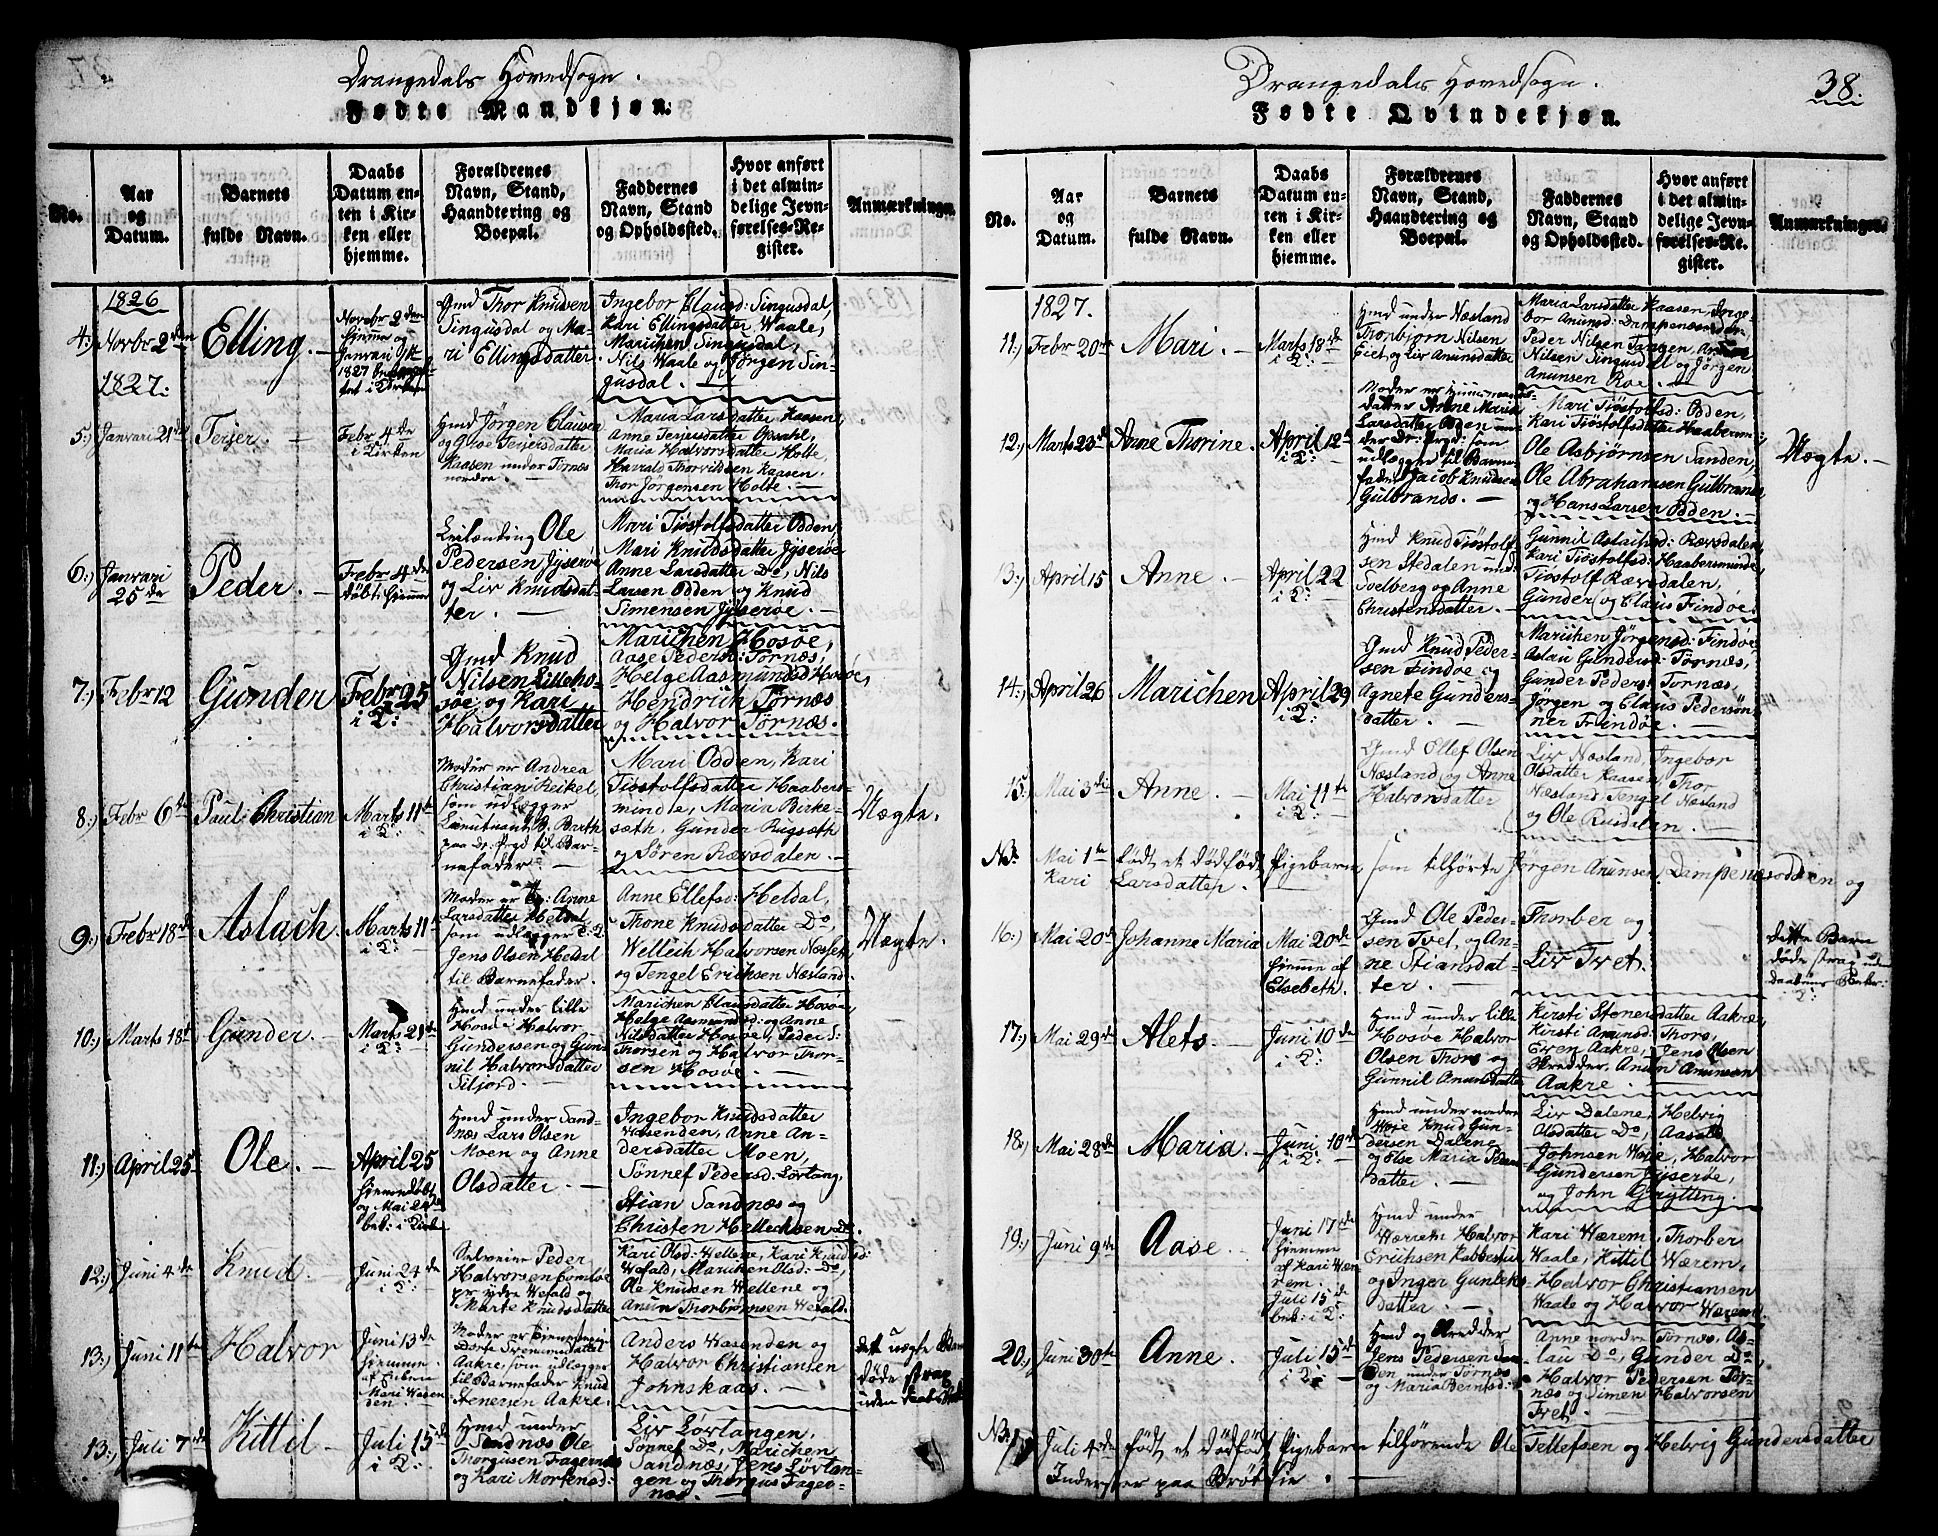 Drangedals Hovedsogn.
Fødte Mandkjøn.
No.
Aar og Datum.
Barnets fulde Navn.
Daabs Datum enten i Kirken eller hjemme.
Forældrenes Navn, Stand, Haandtering og Boepæl.
Faddernes Navn, Stand og Opholdssted.
Hvor anført i det almindelige Jevnførelses-Register.
Anmærkninger.
1826
4.)
Novbr 2den
Elling. —
Novbr 2den
hjemme og
Januari
1827
Gmd Thor Knudsen
Singusdal og Ma-
ri Ellingsdatter
Ingebor Clausd: Singusdal,
Kari Ellingsdatter Waale,
Marichen Singusdal,
Nils Waale og Jørgen Sin-
gusdal. —
1827.
5.)
Januari 21de
Terjer. —
Febr 4de
i Kirken
Hmd Jørgen Clausen
og Aase Terjersdatter
Kaasen under Tørnes
nordre. —
Maria Larsdatter Kaasen,
Anne Terjersdatter Opsahl,
Maria Halvorsdatter Holte,
Harrald Thorrildsen Kaasen,
Thor Jørgensen Holte. —
6.)
Januari
25de
Peder. —
Febr 4de
døbt: hjemme
Leilænding Ole
Pedersen Jyserøe
og Liv Knudsdat-
ter. —
Mari Tiøstolfsdatter Odden,
Mari Knudsdatter Jyserøe
Anne Larsdatter Do, Nils
Larsen Odden og Knud
Simensen Jyserøe. —
7.)
Febr 12
Gunder
Febr 25
i K:
Gmd Knud
Nilsen Lilleho-
søe og Kari
Halvorsdatter
Marichen Hosøe,
Aase Peders: Tørnes,
Helge Aasmundsd Hosøe,
Hendrich Tørnæs
og Halvor Tørnes. —
8.)
Febr 6te
Paul Christian
Marts 11te
i K:
Moder er Andrea
Christian Reikel,
som udlægger
Lieutnant B. Barth
paa Dr: Prgd til Bar-
nefader. —
Mari Odden, Kari
Tiøstolfsdatter Haabers-
minde, Maria Birke-
sæth, Gunder Rugsæth
og Søren Rævsdalen. —
Uægte.
9.)
Febr 18de
Aslach.
Marts 11te
i K:
Moder er Anne
Larsdatter Heldal,
som udlægger
Jens Olsen Heldal
til Barnefader.
Anne Ellefsd: Heldal,
Thone Knudsdatter Do,
Welleik Halvorsen Næset
og Tengel Erichsen Næsland.
Uægte.
10.)
Marts 18de
Gunder. —
Marts 21de
i K:
Hmd under lille
Hosøe Halvor
Gundersen og Gun-
nil Halvorsdatter
Siljord. —
Marichen Clausdatter Hosøe
Helge Aasmundsd: og Anne
Nilsdatter Hosøe, Peder
Thorsen og Halvor Thor-
sen Hosøe. —
11.)
April 25
Ole. —
April 25
hjemmedøbt
og Mai 24de
bek: i Kirken
Hmd under Sand-
næs Lars Olsen
Moen og Anne
Olsdatter. —
Ingebor Knudsdatter
Wasenden, Anne An-
dersdatter Moen,
Sønnef Pedersd: Lørtang,
Stian Sandnæs og
Christen Helleksen Do
12.)
Juni 4de
Knud. —
Juni 24de
i K:
Selveier Peder
Halvorsen
pr: ydre Wefald og
Marte Knudsdatter
Kari Olsd: Wellene, Kari Knudsd:
Wefald, Marichen Olsd: Do,
Ole Knudsen Wellene og
Anun Thorbjørnsen Wefald.
13.)
Juni 11te
Halvor
Juni 13de
hjemme
af
Mari Wasen-
den. —
Moder er Pienestepige
Dorte Svenumsdatter
Aakre, som udlægger
til Barnefader Knud
Stenersen Aakre.
Anders Wasenden og
Halvor Christiansen
Johnskaas. —
det uægte Barn
døde strax
uden
13.)
Juli 7de
Kittil —
Juli 15de
i K:
Hmd under
Sandnæs Ole
Thorgusen Fagernes
og Kari Mortensd:
Liv Lørtangen,
Sønnef Do, Marichen
Sandnæs, Jens Lørtan-
gen og Thorgus Fager-
næs. —
Drangedals Hovedsogn.
38.
Fødte Qvindekjøn.
No.
Aar og Datum.
Barnets fulde Navn.
Daabs Datum enten i Kirken eller hjemme.
Forældrenes Navn, Stand, Haandtering og Boepæl.
Faddernes Navn, Stand og Opholdssted.
Hvor anført i det almindelige Jevnførelses-Register.
Anmærkninger.
1827.
11.)
Febr 20de
Mari. —
Marts 18de
i K:
Hmd under Næsland
Thorbjørn Nilsen
Eiet, og Liv Anunsdatter
Maria Larsdatter Kaasen, Inge-
bor Anunsd: Dampenesodden
Peder Nilsen Tangen, Anun
Nilsen Singusdal og Jørgen
Anunsen Roe. —
12.)
Marts 23de
Anne Thorine.
April 12te
i K:
Moder er Huusmands-
datter Anne Maria
Larsdatter Odden un-
der Dr: Prgd: som
udlægger til Barne-
fader Jacob Knudsen
Gulbrands. —
Mari Tiøstolfsd: Odden,
Kari Tiøstolfsdatter Haabersm:,
Ole Asbjørnsen Sanden,
Ole Abrahamsen Gulbrands
og Hans Larsen Odden. —
Uægte. —
13.)
April 15
Anne. —
April 22
i K:
Hmd Knud Tiøstolf-
sen Stedalen und:
Svelberg og Anne
Christensdatter. —
Gunnil Aslaksd: Rævsdalen,
Kari Tiøstolfsd: Haabersminde,
Tiøstolf Rævsdalen,
Gunder og Claus Findøe.
14.)
April 26
Marichen
April 29
i K:
Gmd Knud Peder-
sen Findøe og
Agnete Gunders-
datter. —
Marichen Jørgensd: Findøe
Aslau Gundersd: Tørnæs,
Gunder Peders: Tornæs,
Jørgen og Claus Pedersøn-
ner Findøe. —
15.)
Mai 3die
Anne. —
Mai 11te
i K:
Gmd Ellef Olsen
Næsland og Anne
Halvorsdatter
Liv Næsland, Ingebor
Olsdatter Kaasen, Thor
Næsland, Tengel Næsland
og Ole Rusdalen. —
NB.
Mai 1te født et dødfødt Pigebarn, som tilhørte Jørgen Anunsen Dampenesodden og
Kari Larsdatter.
16.)
Mai 20de
Johanne Maria
Mai 20de
hjemme af
Elsebeth.
Gmd Ole Peder-
sen Tvet, og An-
ne Stiansdat-
ter. —
Thorber og
Liv Tvet.
Dette Barn
døde strax
17.)
Mai 29de
Alets. —
Juni 10de
i K:
Hmd under lille
Hosøe Halvor
Olsen Thors og
Gunnil Anunsdatter
Kirsti Stenersdatter Aakre,
Kirsti Anunsd: Thors,
Even Aakre, Jens Olsen
Skredder, Anun Anunsen
Aakre. —
18.)
Mai 28de
Maria. —
Juni 10de
i K:
Hmd under nordre
Woje Knud Gun-
dersen Dalene
og Else Maria Peders-
datter. —
Liv Dalene, Helvig
Olsdatter Do, Aasold
Johnsen Woje, Halvor
Gundersen Jyserøe,
og John Grytting. —
19.)
Juni 9de
Aase. —
Juni 17de
hjemme
af Kari Wæ-
rem.
Juli 15de
bek: i K:
Hmd under
Wærem Halvor
Erichsen Kabbestue
og Inger Gunleks-
datter. —
Kari Wærem, Thorber
Waale, Kittil Wærem,
Halvor Christiansen
Waale og Halvor Wærem
20.)
Juni 30te
Anne. —
Juli 15de
i K:
Hmd og Skredder
Jens Pedersen
under Tornes
og Maria Berntsd:
Anne nordre Tornæs, As-
lau Do, Gunder Do
Halvor Pedersen Tor-
næs og Simen Halvorsen
Tvet. —
NB.
Juli 4de født et dødfødt Pigebarn tilhørende Ole Tellefsen og Helvig Gundersdatter
Inderster paa Brødsie. —